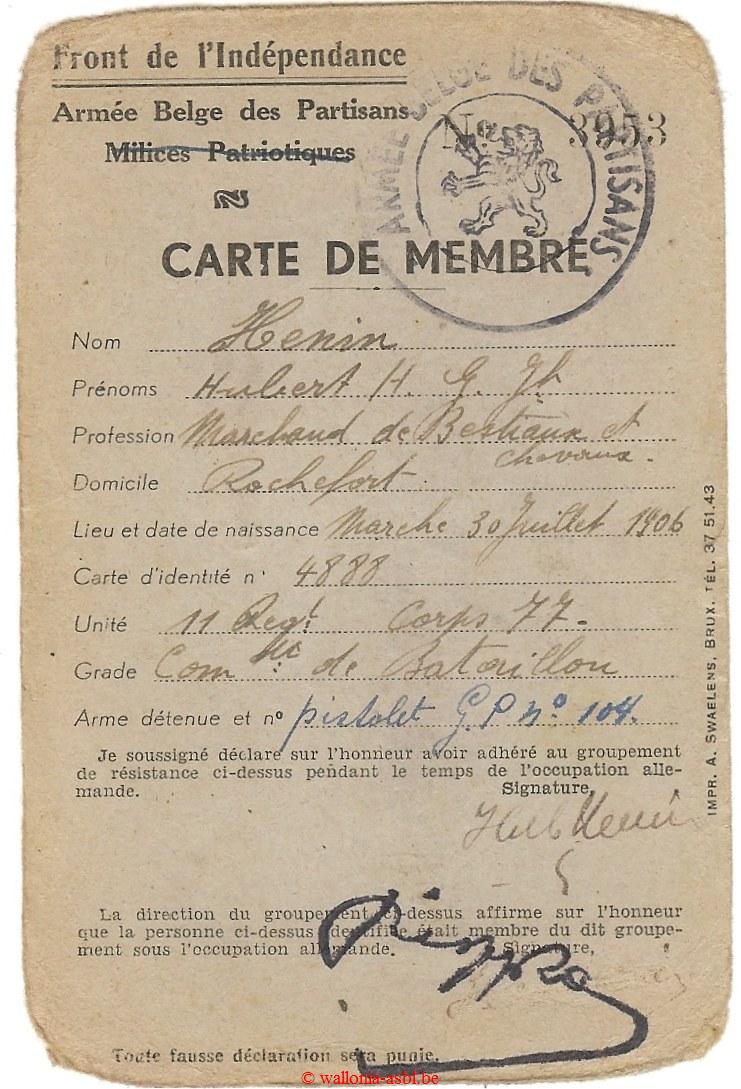 Front de l'Indépendance
Armée Belge des Partisans
Milices Patriotiques
ARMÉE BELGE DES PARTISANS
No 3953
CARTE DE MEMBRE
Nom Henin
Prénoms Hubert H. G. Jh
Profession Marchand de Bestiaux et
chevaux.
Domicile Rochefort
Lieu et date de naissance Marche 30 Juillet 1906
Carte d'identité n° 4888
Unité 11 Regt Corps 77.
Grade Com de Bataillon
Arme détenue et no pistolet G.P no. 104.
Je soussigné déclare sur l'honneur avoir adhéré au groupement
de résistance ci-dessus pendant le temps de l'occupation alle-
mande. Signature,
Henin
La direction du groupement ci-dessus affirme sur l'honneur
que la personne ci-dessus identifiée était membre du dit groupe-
ment sous l'occupation allemande. Signature,
Toute fausse déclaration sera punie.
IMPR. A. SWAELENS, BRUX. TÉL. 37 51.43
© wallonia-asbl.be